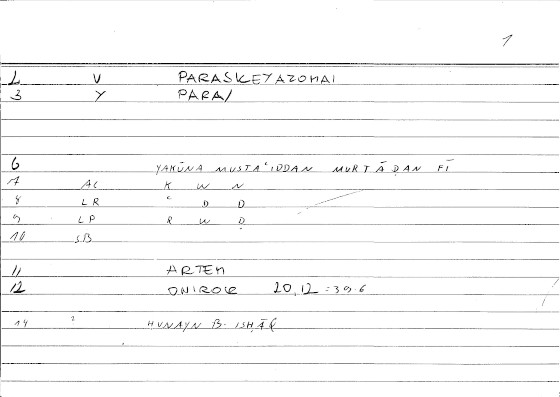 1
1 V PARASKEYAZOMAI
3 Y PARA/
6 YAKŪNA MUSTAʿIDDAN MURTĀḌAN FĪ
7 AC K W N
8 LR ʿ D D
9 LP R W Ḍ
10 SB
11 ARTEM
12 ONIROK 20,12 = 39.6
14 2 ḤUNAYN B. ISḤĀQ